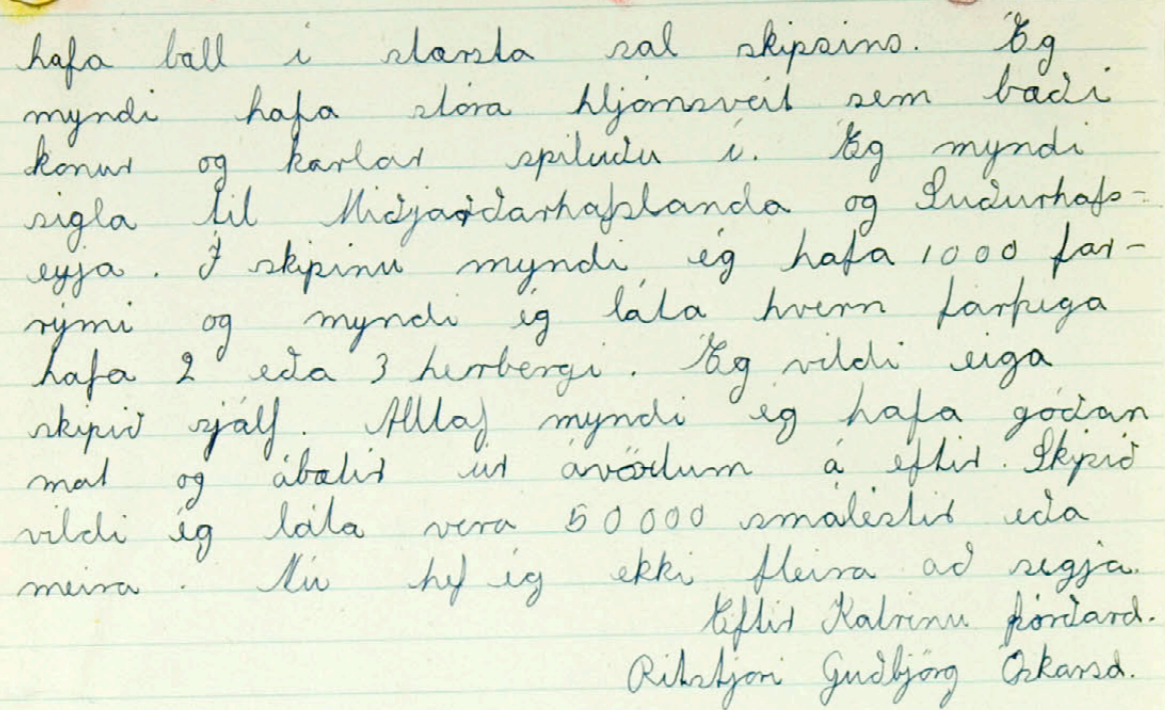 hafa ball í stærsta sal skipsins. Ég
myndi hafa stóra hljómsveit sem bæði
konur og karlar spiluðu í. Ég myndi
sigla til Miðjarðarhafslanda og Suðurhafs-
eyja. Í skipinu myndi ég hafa 1000 far-
rými og myndi ég láta hvern farþega
hafa 2 eða 3 herbergi. Ég vildi eiga
skipið sjálf. Alltaf myndi ég hafa góðan
mat og ábætir úr ávöxtum á eftir. Skipið
vildi ég láta vera 50000 smálestir eða
meira. Nú hef ég ekki fleira að segja.
Eftir Katrínu Þórðard.
Ritstjóri Guðbjörg Óskarsd.